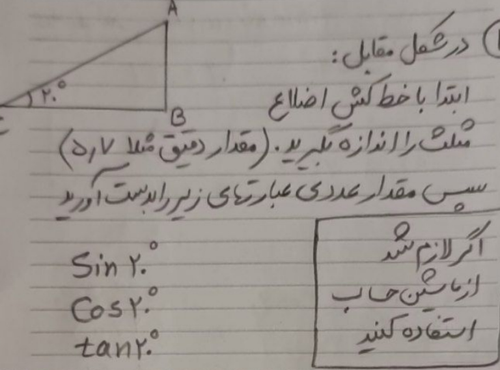 در شکل مقابل:
ابتدا با خط کش اضلاع
مثلث را اندازه بگیرید. (مقدار دقیق مثلا ۵٫۷)
سپس مقدار عددی عبارتهای زیر را بدست آورید
Sin ۲۰°
Cos ۲۰°
tan ۲۰°
اگر لازم شد
از ماشین حساب
استفاده کنید
A
۲۰°
B
C